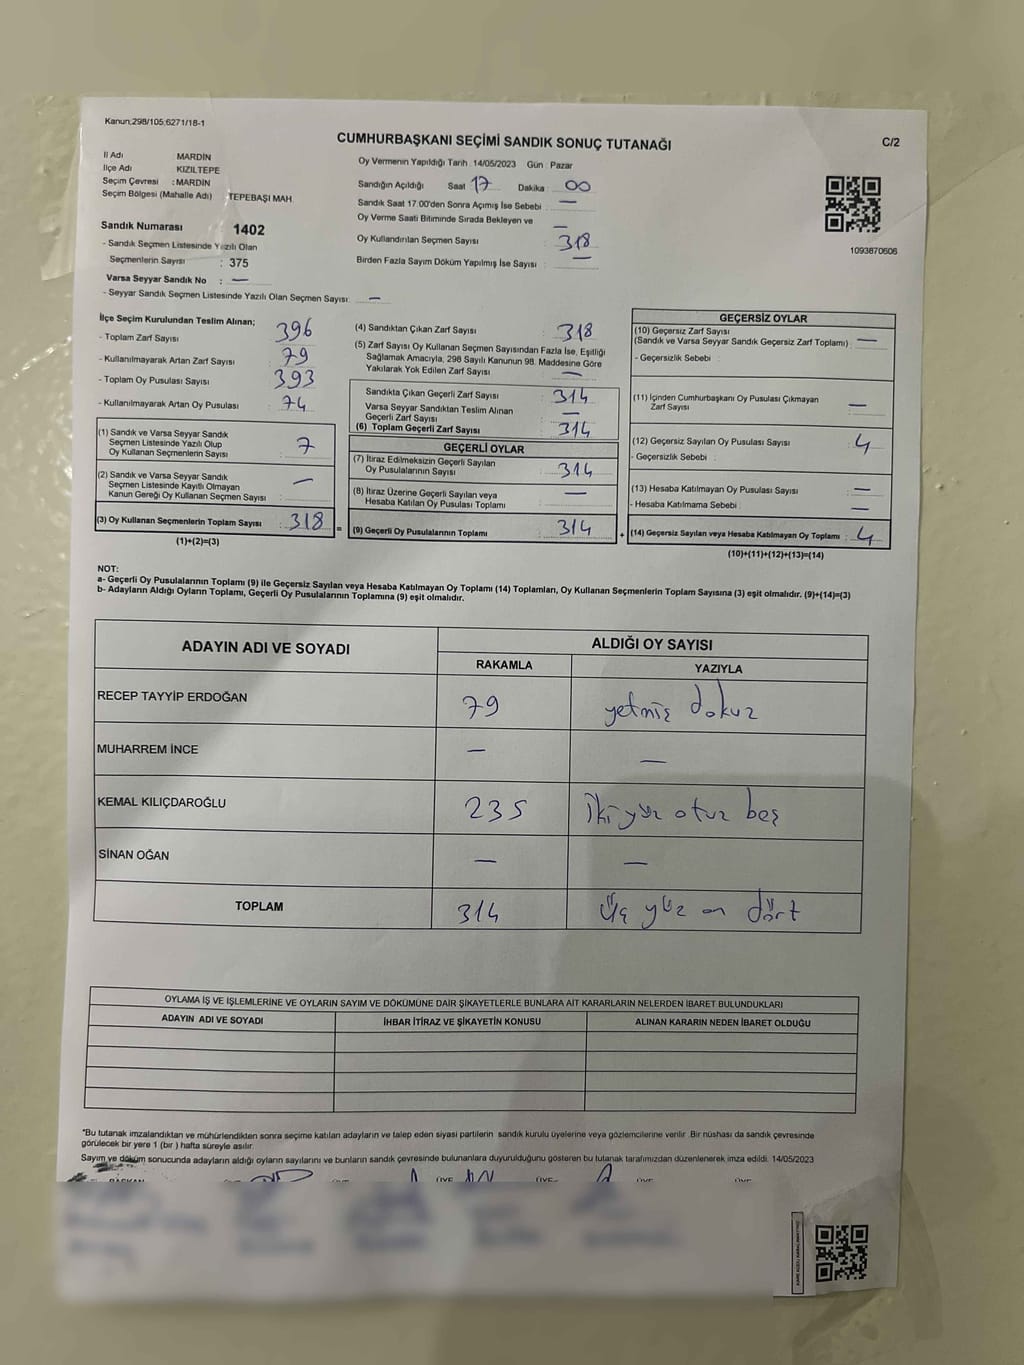 Kanun:298/105;6271/18-1
CUMHURBAŞKANI SEÇİMİ SANDIK SONUÇ TUTANAĞI
C/2
İl Adı MARDİN
İlçe Adı KIZILTEPE
Seçim Çevresi : MARDİN
Seçim Bölgesi (Mahalle Adı) TEPEBAŞI MAH.
Sandık Numarası 1402
- Sandık Seçmen Listesinde Yazılı Olan
Seçmenlerin Sayısı : 375
Varsa Seyyar Sandık No : —
- Seyyar Sandık Seçmen Listesinde Yazılı Olan Seçmen Sayısı: —
Oy Vermenin Yapıldığı Tarih : 14/05/2023 Gün : Pazar
Sandığın Açıldığı Saat 17 Dakika : 00
Sandık Saat 17.00'den Sonra Açımış İse Sebebi : —
Oy Verme Saati Bitiminde Sırada Bekleyen ve —
Oy Kullandırılan Seçmen Sayısı : 318
Birden Fazla Sayım Döküm Yapılmış İse Sayısı : —
1093870606
İlçe Seçim Kurulundan Teslim Alınan;
- Toplam Zarf Sayısı : 396
- Kullanılmayarak Artan Zarf Sayısı : 79
- Toplam Oy Pusulası Sayısı : 393
- Kullanılmayarak Artan Oy Pusulası : 74
(1) Sandık ve Varsa Seyyar Sandık
Seçmen Listesinde Yazılı Olup
Oy Kullanan Seçmenlerin Sayısı : 7
(2) Sandık ve Varsa Seyyar Sandık
Seçmen Listesinde Kayıtlı Olmayan
Kanun Gereği Oy Kullanan Seçmen Sayısı : —
(3) Oy Kullanan Seçmenlerin Toplam Sayısı : 318 =
(1)+(2)=(3)
(4) Sandıktan Çıkan Zarf Sayısı : 318
(5) Zarf Sayısı Oy Kullanan Seçmen Sayısından Fazla İse, Eşitliği
Sağlamak Amacıyla, 298 Sayılı Kanunun 98. Maddesine Göre
Yakılarak Yok Edilen Zarf Sayısı : —
Sandıkta Çıkan Geçerli Zarf Sayısı : 314
Varsa Seyyar Sandıktan Teslim Alınan
Geçerli Zarf Sayısı : —
(6) Toplam Geçerli Zarf Sayısı : 314
GEÇERLİ OYLAR
(7) İtiraz Edilmeksizin Geçerli Sayılan
Oy Pusulalarının Sayısı : 314
(8) İtiraz Üzerine Geçerli Sayılan veya
Hesaba Katılan Oy Pusulası Toplamı : —
(9) Geçerli Oy Pusulalarının Toplamı : 314 +
GEÇERSİZ OYLAR
(10) Geçersiz Zarf Sayısı
(Sandık ve Varsa Seyyar Sandık Geçersiz Zarf Toplamı) : —
- Geçersizlik Sebebi :
(11) İçinden Cumhurbaşkanı Oy Pusulası Çıkmayan
Zarf Sayısı : —
(12) Geçersiz Sayılan Oy Pusulası Sayısı : 4
- Geçersizlik Sebebi :
(13) Hesaba Katılmayan Oy Pusulası Sayısı : —
- Hesaba Katılmama Sebebi : —
(14) Geçersiz Sayılan veya Hesaba Katılmayan Oy Toplamı : 4
(10)+(11)+(12)+(13)=(14)
NOT:
a- Geçerli Oy Pusulalarının Toplamı (9) ile Geçersiz Sayılan veya Hesaba Katılmayan Oy Toplamı (14) Toplamları, Oy Kullanan Seçmenlerin Toplam Sayısına (3) eşit olmalıdır. (9)+(14)=(3)
b- Adayların Aldığı Oyların Toplamı, Geçerli Oy Pusulalarının Toplamına (9) eşit olmalıdır.
ADAYIN ADI VE SOYADI ALDIĞI OY SAYISI
RAKAMLA YAZIYLA
RECEP TAYYİP ERDOĞAN 79 yetmiş dokuz
MUHARREM İNCE — —
KEMAL KILIÇDAROĞLU 235 İki yüz otuz beş
SİNAN OĞAN — —
TOPLAM 314 Üç yüz on dört
OYLAMA İŞ VE İŞLEMLERİNE VE OYLARIN SAYIM VE DÖKÜMÜNE DAİR ŞİKAYETLERLE BUNLARA AİT KARARLARIN NELERDEN İBARET BULUNDUKLARI
ADAYIN ADI VE SOYADI İHBAR İTİRAZ VE ŞİKAYETİN KONUSU ALINAN KARARIN NEDEN İBARET OLDUĞU
*Bu tutanak imzalandıktan ve mühürlendikten sonra seçime katılan adayların ve talep eden siyasi partilerin sandık kurulu üyelerine veya gözlemcilerine verilir. Bir nüshası da sandık çevresinde
görülecek bir yere 1 (bir ) hafta süreyle asılır.
Sayım ve döküm sonucunda adayların aldığı oyların sayılarını ve bunların sandık çevresinde bulunanlara duyurulduğunu gösteren bu tutanak tarafımızdan düzenlenerek imza edildi. 14/05/2023
BAŞKAN ÜYE ÜYE ÜYE ÜYE